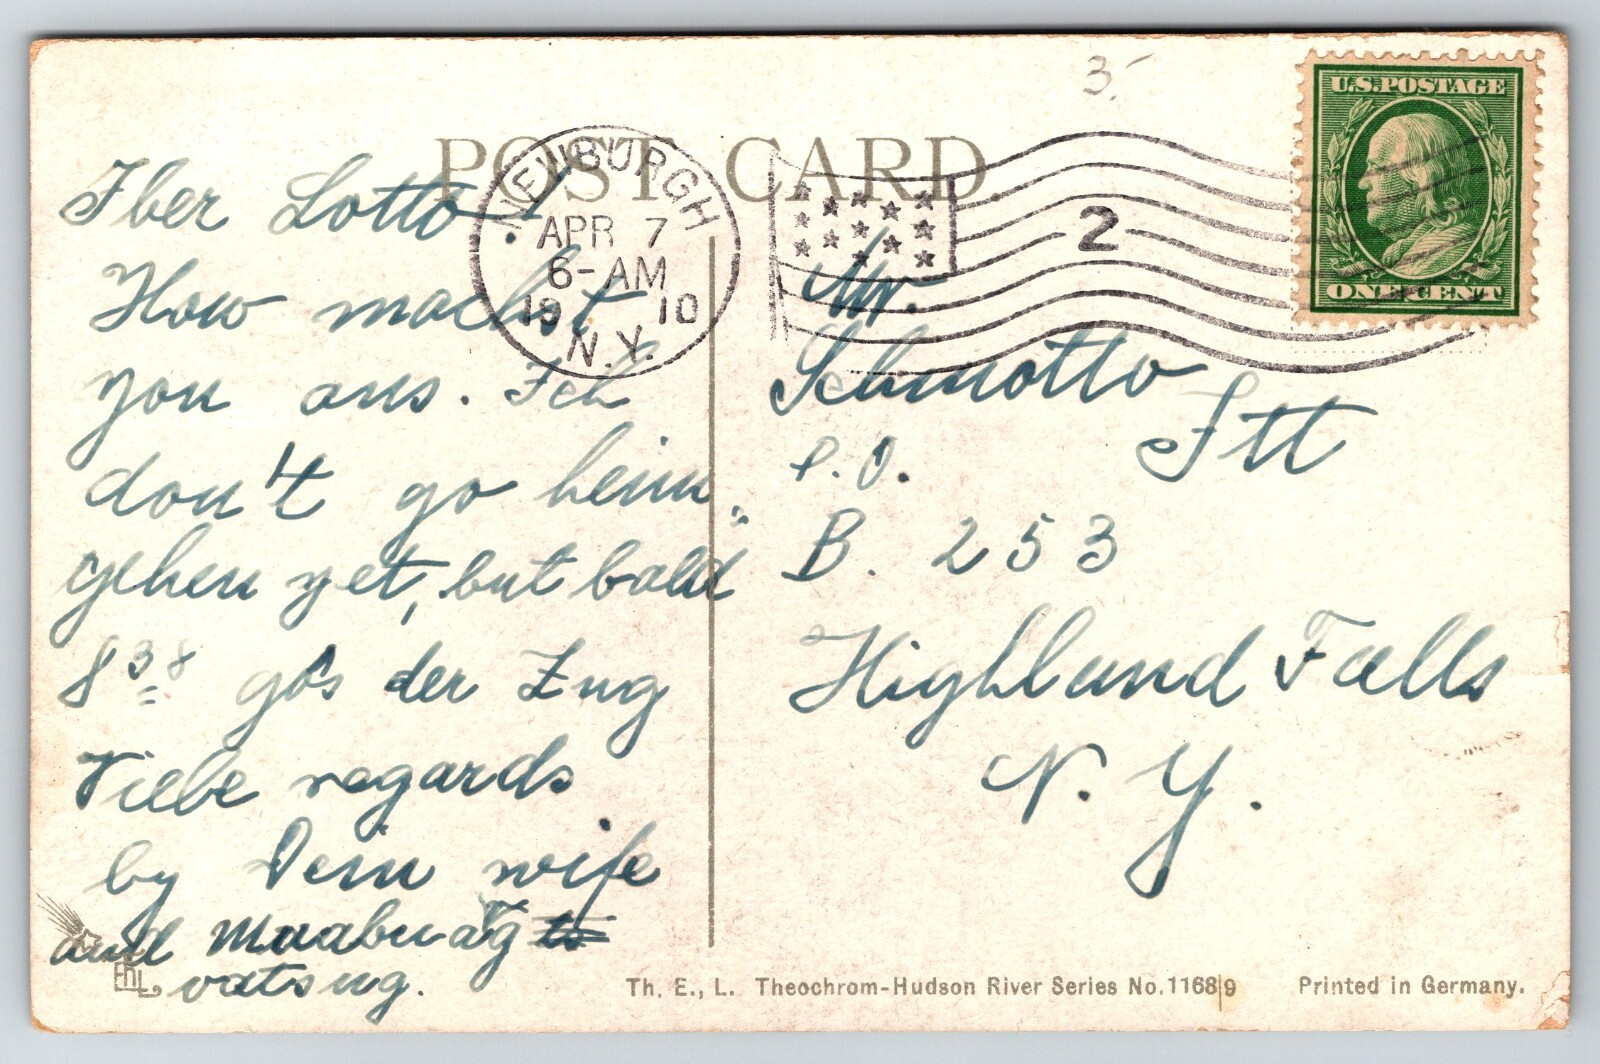 3.-
POST CARD
U.S. POSTAGE
ONE CENT
NEWBURGH
APR 7
6-AM
1910
N.Y.
2
Iber Lotto!
How machst
you ans. Ich
don't go heim
gehen yet, but bald
8 38 go's der Zug
Viele regards
by Dein wife
and
vatsug.
Mr.
Schmotto
Stt
P.O.
B. 253
Highland Falls
N. Y.
Th. E., L. Theochrom-Hudson River Series No. 1168|9
Printed in Germany.